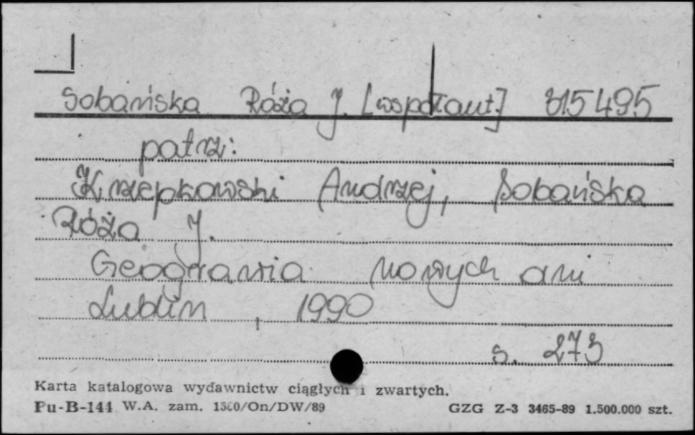 Sobańska Róża J. [współaut] 815495
patrz:
Krzepkowski Andrzej, Sobańska
Róża J.
Geograwia nowych dni
Lublin, 1990
s. 273
Karta katalogowa wydawnictw ciągłych i zwartych.
Pu-B-144 W.A. zam. 1500/On/DW/89 GZG Z-3 3465-89 1.500.000 szt.